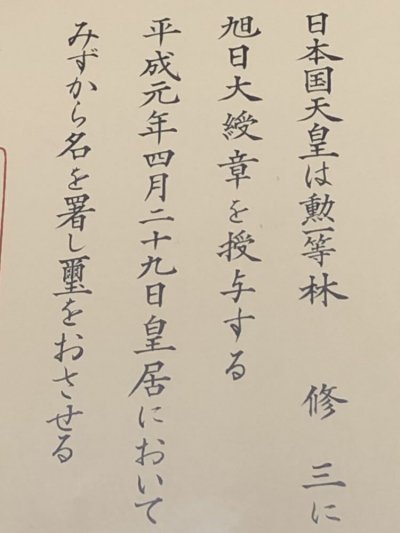 日本国天皇は勲一等林 修三に
旭日大綬章を授与する
平成元年四月二十九日皇居において
みずから名を署し璽をおさせる